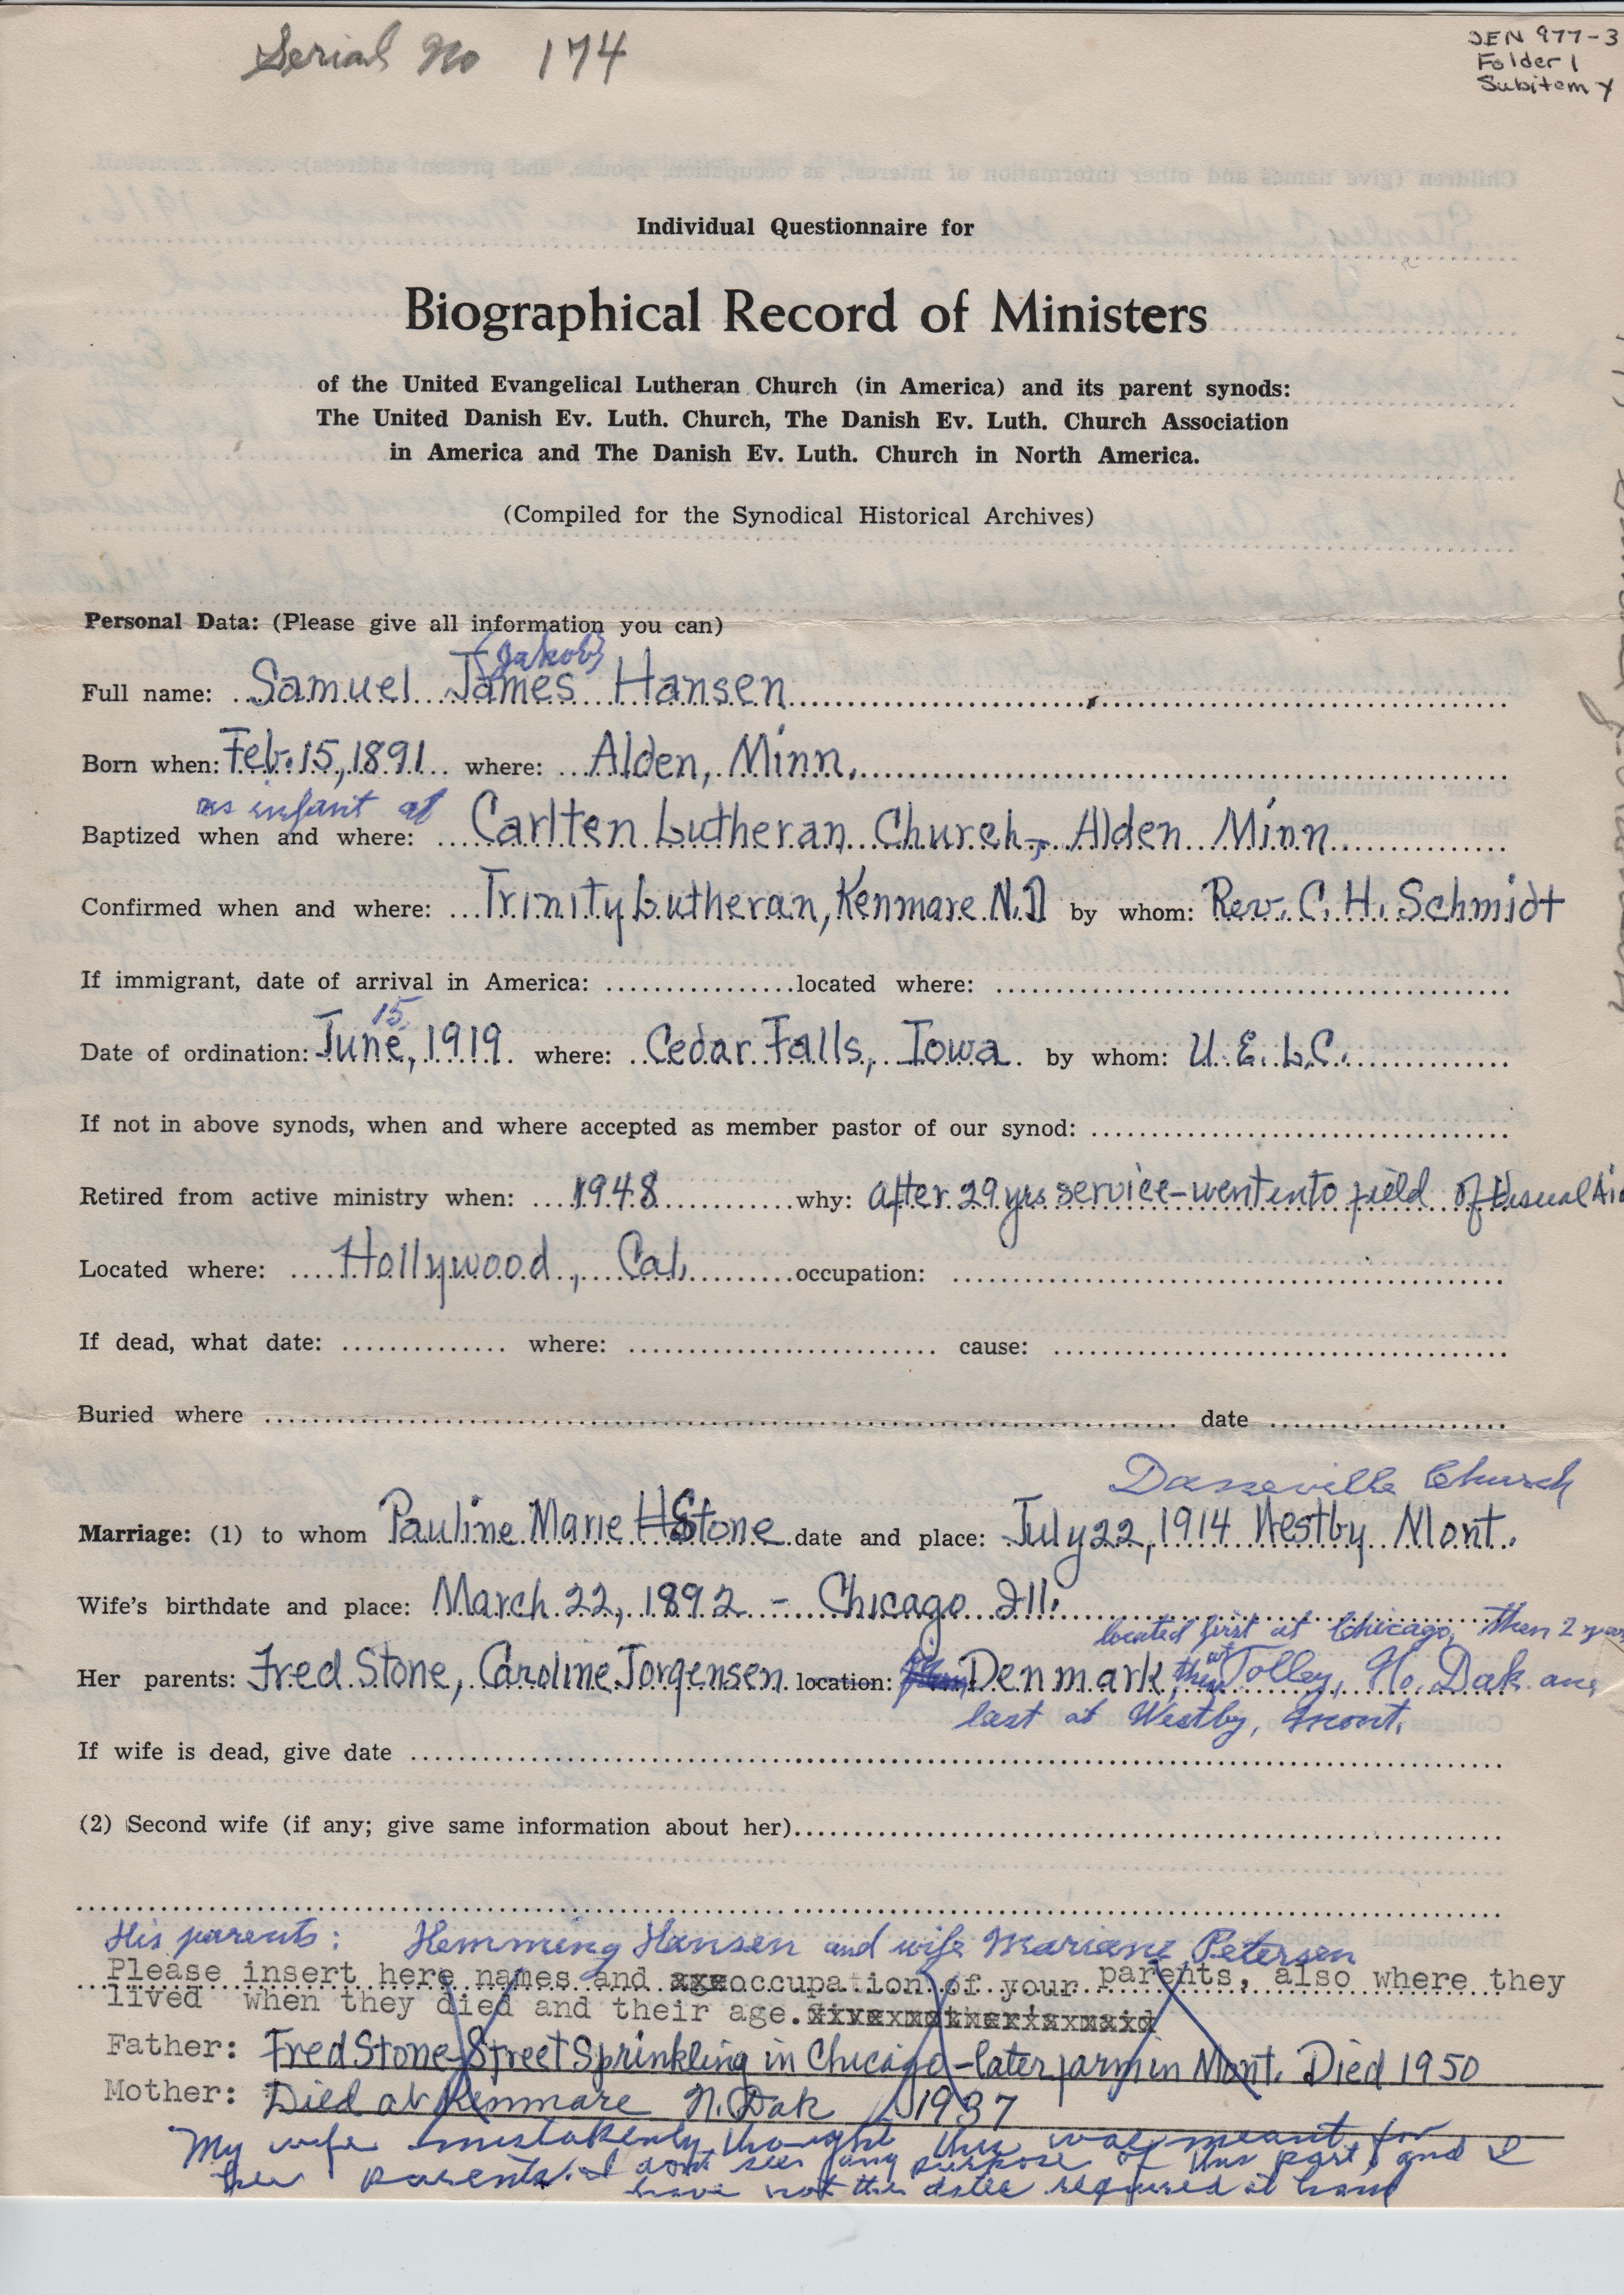 Serial No 174
JEN 977-3
Folder 1
Subitem y
Individual Questionnaire for
Biographical Record of Ministers
of the United Evangelical Lutheran Church (in America) and its parent synods:
The United Danish Ev. Luth. Church, The Danish Ev. Luth. Church Association
in America and The Danish Ev. Luth. Church in North America.
(Compiled for the Synodical Historical Archives)
Personal Data: (Please give all information you can)
(Jakob)
Full name: Samuel James Hansen
Born when: Feb. 15, 1891 where: Alden, Minn.
as infant at
Baptized when and where: Carlten Lutheran Church, Alden Minn
Confirmed when and where: Trinity Lutheran, Kenmare N.D by whom: Rev. C. H. Schmidt
If immigrant, date of arrival in America: located where:
15
Date of ordination: June, 1919 where: Cedar Falls, Iowa by whom: U. E. L. C.
If not in above synods, when and where accepted as member pastor of our synod:
Retired from active ministry when: 1948 why: After 29 yrs service-went into field of Visual Aid
Located where: Hollywood, Cal. occupation:
If dead, what date: where: cause:
Buried where date
Daneville Church
Marriage: (1) to whom Pauline Marie Stone date and place: July 22, 1914 Westby Mont.
Wife's birthdate and place: March 22, 1892 - Chicago Ill.
located first at Chicago, then 2 years
Her parents: Fred Stone, Caroline Jorgensen location: Denmark, then at Tolley, No. Dak and
last at Westby, Mont.
If wife is dead, give date
(2) Second wife (if any; give same information about her)
His parents: Hemming Hansen and wife Mariane Petersen
Please insert here names and xxx occupation of your parents, also where they
lived when they died and their age.
Father: Fred Stone Street Sprinkling in Chicago - later farm in Mont. Died 1950
Mother: Died at Kenmare N. Dak 1937
My wife mistakenly thought this was meant for
her parents. I dont see any purpose of this part, and I
have not the dates required at hand